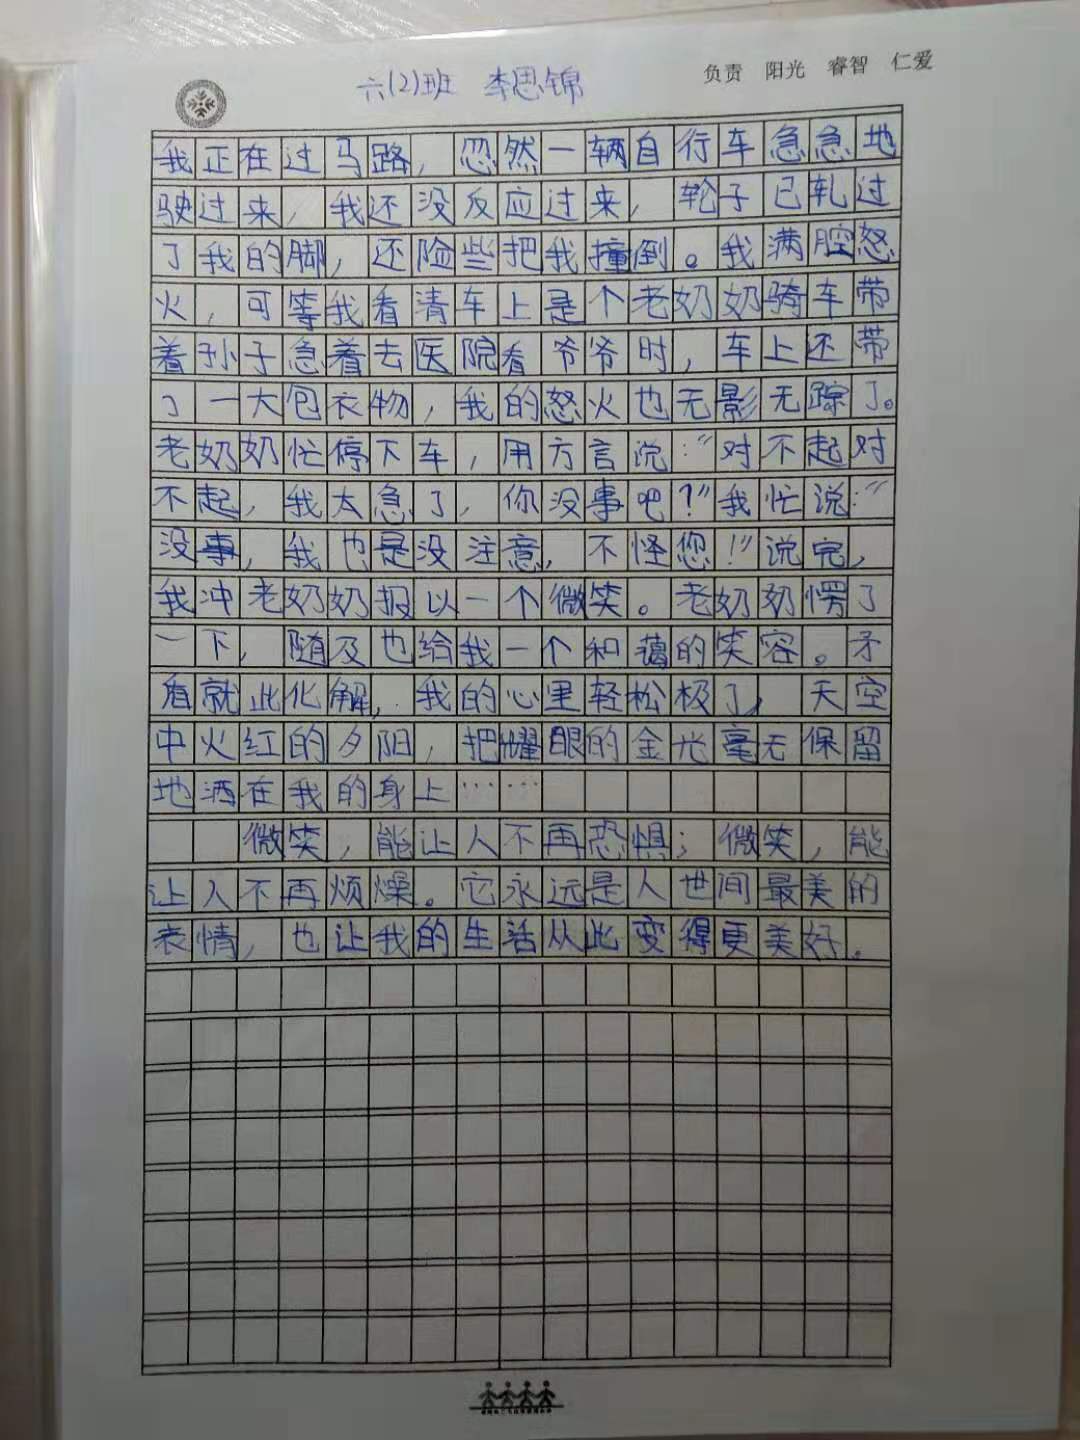 六(2)班 李思锦
负责 阳光 睿智 仁爱
我正在过马路，忽然一辆自行车急急地
驶过来，我还没反应过来，轮子已轧过
了我的脚，还险些把我撞倒。我满腔怒
火，可等我看清车上是个老奶奶骑车带
着孙子急着去医院看爷爷时，车上还带
了一大包衣物，我的怒火也无影无踪了。
老奶奶忙停下车，用方言说：“对不起对
不起，我太急了，你没事吧？”我忙说：“
没事，我也是没注意，不怪您！”说完，
我冲老奶奶报以一个微笑。老奶奶愣了
一下，随及也给我一个和蔼的笑容。矛
盾就此化解，我的心里轻松极了，天空
中火红的夕阳，把耀眼的金光毫无保留
地洒在我的身上……
微笑，能让人不再恐惧；微笑，能
让人不再烦燥。它永远是人世间最美的
表情，也让我的生活从此变得更美好。